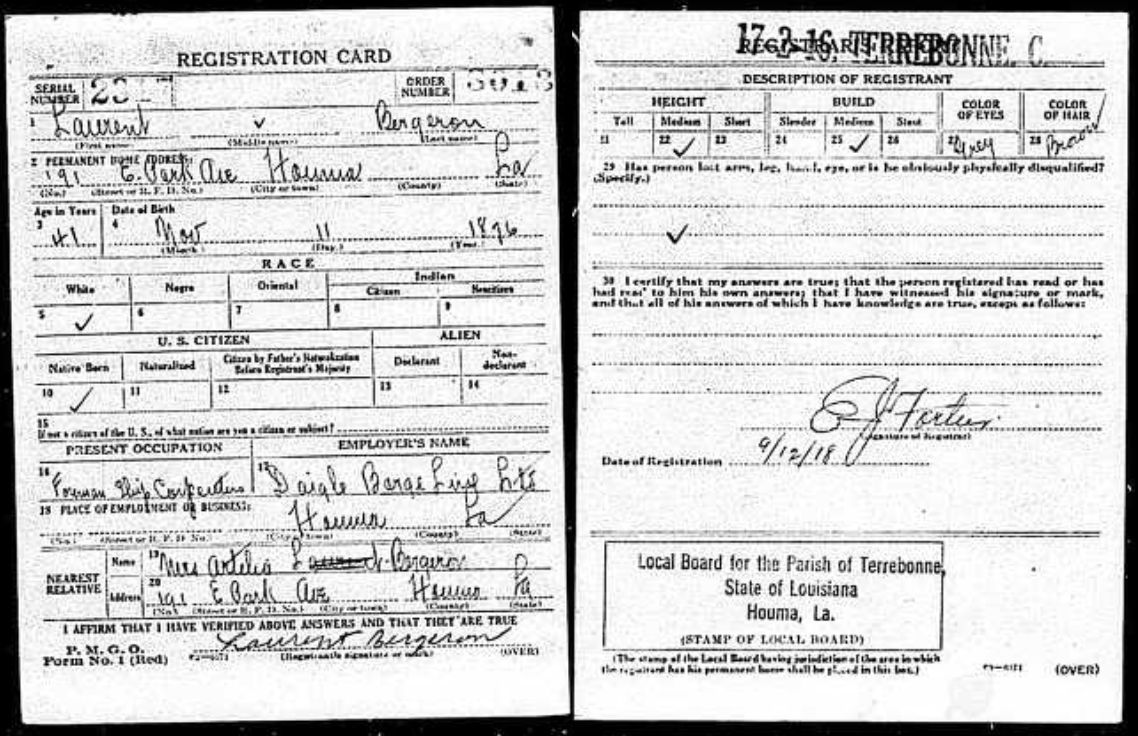 REGISTRATION CARD
SERIAL NUMBER
ORDER NUMBER
1 Laurent ✓ Bergeron
(First name) (Middle name) (Last name)
2 PERMANENT HOME ADDRESS:
191 E. Park Ave Houma La
(No.) (Street or R. F. D. No.) (City or town) (County) (State)
Age in Years Date of Birth
3 41 4 Nov 11 1876
(Month.) (Day.) (Year.)
RACE
White Negro Oriental Indian
Citizen Noncitizen
5 ✓ 6 7 8 9
U. S. CITIZEN ALIEN
Native Born Naturalized Citizen by Father's Naturalization Before Registrant's Majority Declarant Non-declarant
10 ✓ 11 12 13 14
15
If not a citizen of the U. S., of what nation are you a citizen or subject?
PRESENT OCCUPATION EMPLOYER'S NAME
16 Forman Ship Carpenters 17 Daigle Barge Line Ltd
18 PLACE OF EMPLOYMENT OR BUSINESS:
Houma La
(No.) (Street or R. F. D. No.) (City or town) (County) (State)
NEAREST RELATIVE
Name 19 Mrs Artelia Bergeron
Address 20 191 E Park Ave Houma La
(No.) (Street or R. F. D. No.) (City or town) (County) (State)
I AFFIRM THAT I HAVE VERIFIED ABOVE ANSWERS AND THAT THEY ARE TRUE
Laurent Bergeron
P. M. G. O.
Form No. 1 (Red) (Registrant's signature or mark) (OVER)
17-2-16. TERREBONNE. C.
REGISTRAR'S REPORT
DESCRIPTION OF REGISTRANT
HEIGHT BUILD COLOR OF EYES COLOR OF HAIR
Tall Medium Short Slender Medium Stout
21 22 ✓ 23 24 25 ✓ 26 27 Grey 28 Brown
29 Has person lost arm, leg, hand, eye, or is he obviously physically disqualified?
(Specify.)
✓
30 I certify that my answers are true; that the person registered has read or has
had read to him his own answers; that I have witnessed his signature or mark,
and that all of his answers of which I have knowledge are true, except as follows:
E J Fortier
(Signature of Registrar)
Date of Registration 9/12/18
Local Board for the Parish of Terrebonne,
State of Louisiana
Houma, La.
(STAMP OF LOCAL BOARD)
(The stamp of the Local Board having jurisdiction of the area in which
the registrant has his permanent home shall be placed in this box.)
(OVER)